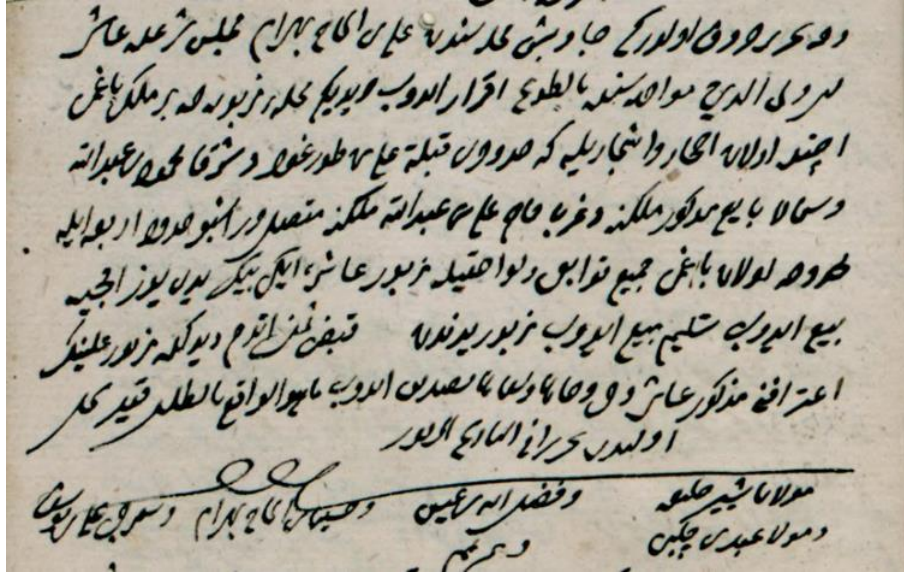 وجه تحرير حروف اولدركه جاويش محله سندن علي بن الحاج بهرام مجلس شرعده عاشر
بن ولي الدين مواجهه سنده بالطوع اقرار ايدوب ديديكم محله مزبوره ده بر ملك باغمى
اچنده اولان احجار و اشجاريله كه حدودى قبلة علي بن طورغود و شرقا محمود بن عبدالله
و شمالا بايع مذكور ملكنه و غربا حاج علي بن عبدالله ملكنه متصلدر اشبو حدود اربعه ايله
محدود اولان باغمى جميع توابع و لواحقيله مزبور عاشره ايكى بيك يدى يوز اقچه يه
بيع ايدوب تسليم مبيع ايدوب مزبور يدندن قبض ثمن ايتدم ديدكده مزبور علينك
اعترافنى مذكور عاشر وجاها و شفاها تصديق ايدوب ما هو الواقع بالطلب قيد سجل
اولندى تحريرا في التاريخ المزبور
مولانا شير خليفه و فضل الله بن عيسى و حسين بن الحاج بهرام و علي بن يوسف
و مولانا عبدى چلبى و غيرهم